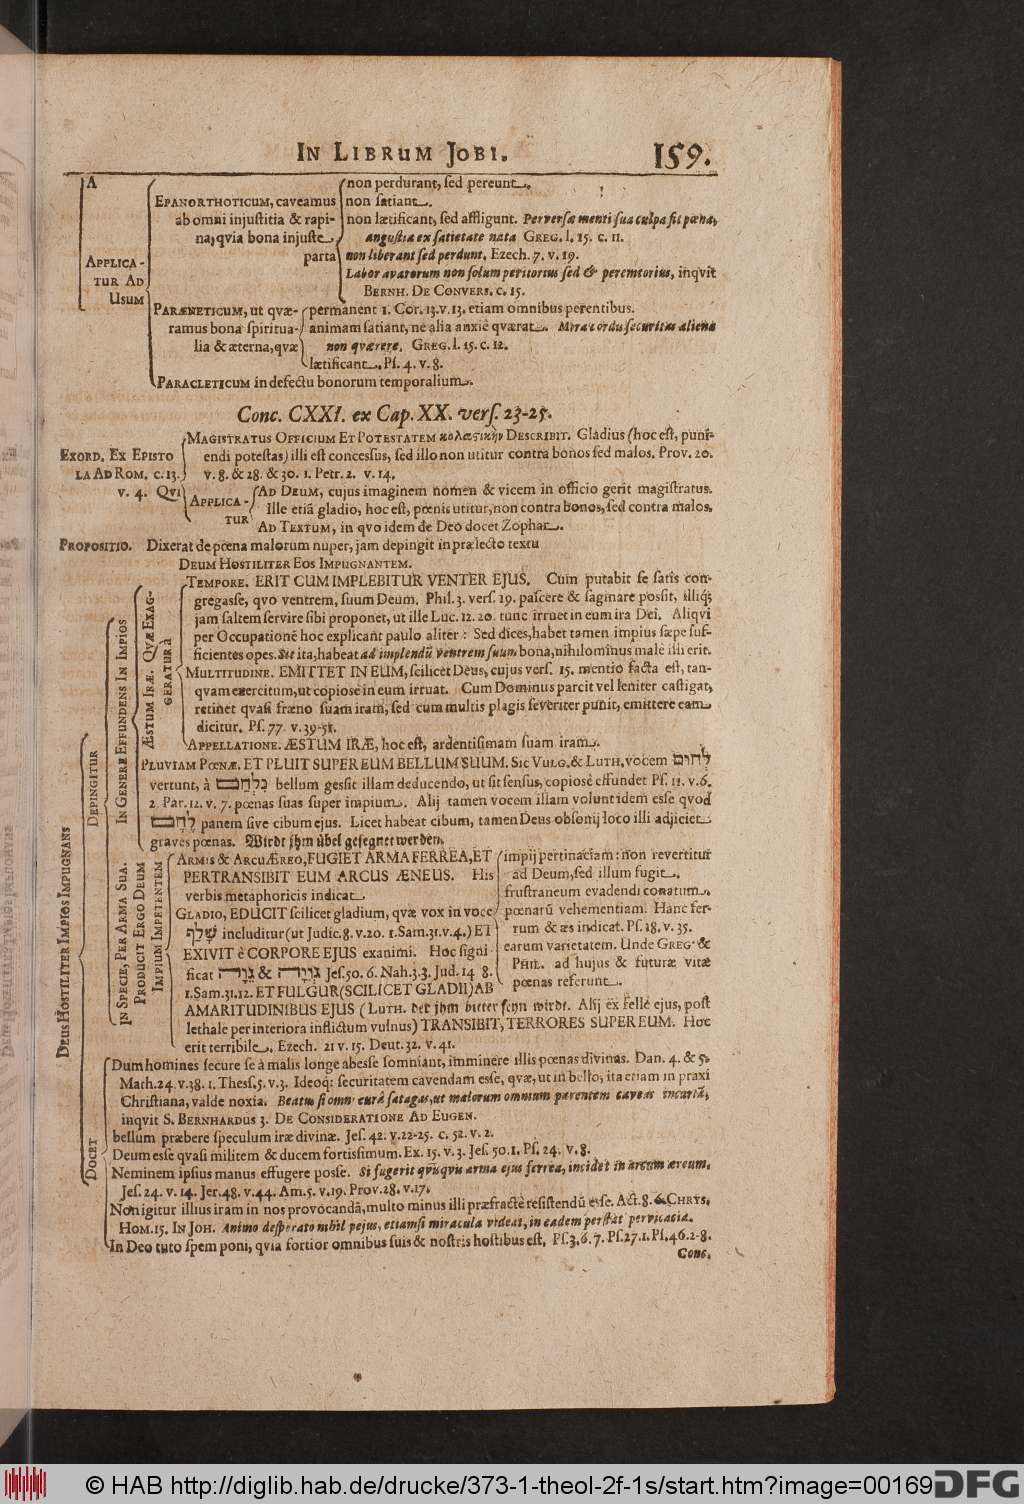 IN LIBRUM JOBI. 159.
A
non perdurant, sed pereunt.
EPANORTHOTICUM, caveamus
non satiant.
ab omni injustitia & rapi-
non lætificant, sed affligunt. Perversæ menti sua culpa fit pœna,
na, qvia bona injuste
angustia ex satietate nata GREG. l. 15. c. 11.
parta
non liberant sed perdunt. Ezech. 7. v. 19.
APPLICA-
Labor avarorum non solum peritorius sed & peremtorius, inqvit
TUR AD
BERNH. DE CONVERS. c. 15.
USUM
PARÆNETICUM, ut qvæ-
permanent 1. Cor. 13. v. 13. etiam omnibus perentibus.
ramus bona spiritua-
animam satiant, ne alia anxiè qværat. Mira cordu securitas aliena
lia & æterna, qvæ
non qværere. GREG. l. 15. c. 12.
lætificant. Ps. 4. v. 8.
PARACLETICUM in defectu bonorum temporalium.
Conc. CXXI. ex Cap. XX. vers. 23-25.
MAGISTRATUS OFFICIUM ET POTESTATEM κολαστικὴν DESCRIBIT. Gladius (hoc est, puni-
EXORD. EX EPISTO
endi potestas) illi est concessus, sed illo non utitur contra bonos sed malos. Prov. 20.
LA AD ROM. c. 13.
v. 8. & 28. & 30. 1. Petr. 2. v. 14.
v. 4. QVI
APPLICA-
TUR
AD DEUM, cujus imaginem nomen & vicem in officio gerit magistratus.
Ille etiã gladio, hoc est, pœnis utitur, non contra bonos, sed contra malos.
AD TEXTUM, in qvo idem de Deo docet Zophar.
PROPOSITIO. Dixerat de pœna malorum nuper, jam depingit in prælecto textu
DEUM HOSTILITER EOS IMPUGNANTEM.
DEUS HOSTILITER IMPIOS IMPUGNANS
DEPINGITUR
IN GENERE EFFUNDENS IN IMPIOS
ÆSTUM IRÆ. QVÆ EXAG-
GERATUR à
TEMPORE. ERIT CUM IMPLEBITUR VENTER EJUS. Cum putabit se satis con-
gregasse, qvo ventrem, suum Deum. Phil. 3. vers. 19. pascere & saginare possit, illiq;
jam saltem servire sibi proponet, ut ille Luc. 12. 20. tunc irruet in eum ira Dei. Aliqvi
per Occupationẽ hoc explicant paulo aliter: Sed dices, habet tamen impius sæpe suf-
ficientes opes. Sit ita, habeat ad implendũ ventrem suum bona, nihilominus male illi erit.
MULTITUDINE. EMITTET IN EUM, scilicet Deus, cujus vers. 15. mentio facta est, tan-
qvam exercitum, ut copiose in eum irruat. Cum Dominus parcit vel leniter castigat,
retinet qvasi fræno suam iram, sed cum multis plagis severiter punit, emittere eam
dicitur. Ps. 77. v. 39-51.
APPELLATIONE. ÆSTUM IRÆ, hoc est, ardentissimam suam iram.
PLUVIAM PŒNÆ. ET PLUIT SUPER EUM BELLUM SUUM. SIC VULG. & LUTH. vocem לחום
vertunt, à לחם bellum gessit illam deducendo, ut sit sensus, copiosè effundet Ps. 11. v. 6.
2. Par. 12. v. 7. pœnas suas super impium. Alij tamen vocem illam volunt idem esse qvod
לחם panem sive cibum ejus. Licet habeat cibum, tamen Deus obsonij loco illi adjiciet
graves pœnas. Wirdt jhm übel gesegnet werden.
IN SPECIE, PER ARMA SUA.
PRODUCIT ERGO DEUM
IMPIUM IMPETENTEM
ARMIS & ARCU ÆREO, FUGIET ARMA FERREA, ET
PERTRANSIBIT EUM ARCUS ÆNEUS. His
verbis metaphoricis indicat
impij pertinaciam: non revertitur
ad Deum, sed illum fugit.
frustraneum evadendi conatum.
GLADIO, EDUCIT scilicet gladium, qvæ vox in voce
שלף includitur (ut Judic. 8. v. 20. 1. Sam. 31. v. 4.) ET
EXIVIT è CORPORE EJUS exanimi. Hoc signi
ficat גוה & גויה Jes. 50. 6. Nah. 3. 3. Jud. 14 8.
1. Sam. 31. 12. ET FULGUR (SCILICET GLADII) AB
pœnarũ vehementiam. Hanc fer-
rum & æs indicat. Ps. 18. v. 35.
earum varietatem. Unde GREG. &
PHIL. ad hujus & futuræ vitæ
pœnas referunt.
AMARITUDINIBUS EJUS (LUTH. der jhm bitter seyn wirdt. Alij ex felle ejus, post
lethale per interiora inflictum vulnus) TRANSIBIT, TERRORES SUPER EUM. Hoc
erit terribile. Ezech. 21 v. 15. Deut. 32. v. 41.
DOCET
Dum homines secure se à malis longe abesse somniant, imminere illis pœnas divinas. Dan. 4. & 5.
Math. 24. v. 38. 1. Thess. 5. v. 3. Ideoq; securitatem cavendam esse, qvæ, ut in bello, ita etiam in praxi
Christiana, valde noxia. Beatus si omni curâ satagas, ut malorum omnium parentem caveas incuriã,
inqvit S. BERNHARDUS 3. DE CONSIDERATIONE AD EUGEN.
bellum præbere speculum iræ divinæ. Jes. 42. v. 22-25. c. 52. v. 2.
Deum esse qvasi militem & ducem fortissimum. Ex. 15. v. 3. Jes. 50. 1. Ps. 24. v. 8.
Neminem ipsius manus effugere posse. Si fugerit qvisqvis arma ejus ferrea, incidet in arcum æreum.
Jes. 24. v. 14. Jer. 48. v. 44. Am. 5. v. 19. Prov. 28. v. 17.
Non igitur illius iram in nos provocandã, multo minus illi præfractè resistendũ esse. Act. 8. & CHRYS.
HOM. 15. IN JOH. Animo desperato nihil pejus, etiamsi miracula videat, in eadem perstat pervicacia.
In Deo tuto spem poni, qvia fortior omnibus suis & nostris hostibus est. Ps. 3. 6. 7. Ps. 27. 1. Ps. 46. 2-8.
Conc.
© HAB http://diglib.hab.de/drucke/373-1-theol-2f-1s/start.htm?image=00169
DFG